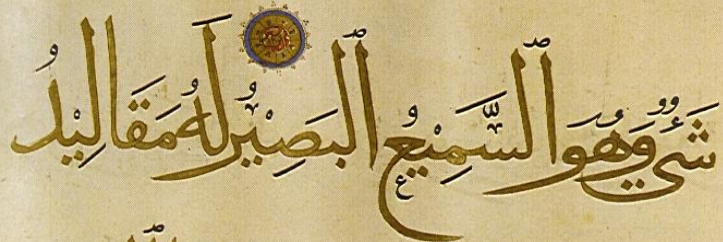 شَىْءٌ وَهُوَ ٱلسَّمِيعُ ٱلبَصِيرُ لَهُ مَقَالِيدُ